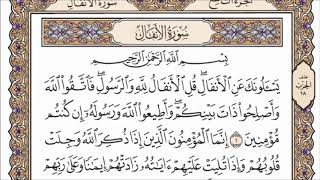 سُورَةُ الأَنْفَالِ
الجُزْءُ التَّاسِعُ
سُورَةُ الأَنْفَالِ
بِسْمِ اللَّهِ الرَّحْمَٰنِ الرَّحِيمِ
يَسْـَٔلُونَكَ عَنِ ٱلْأَنفَالِ ۖ قُلِ ٱلْأَنفَالُ لِلَّهِ وَٱلرَّسُولِ ۖ فَٱتَّقُوا۟ ٱللَّهَ
وَأَصْلِحُوا۟ ذَاتَ بَيْنِكُمْ ۖ وَأَطِيعُوا۟ ٱللَّهَ وَرَسُولَهُۥٓ إِن كُنتُم
مُّؤْمِنِينَ ١ إِنَّمَا ٱلْمُؤْمِنُونَ ٱلَّذِينَ إِذَا ذُكِرَ ٱللَّهُ وَجِلَتْ
قُلُوبُهُمْ وَإِذَا تُلِيَتْ عَلَيْهِمْ ءَايَٰتُهُۥ زَادَتْهُمْ إِيمَٰنًا وَعَلَىٰ رَبِّهِمْ
الحزب
١٨